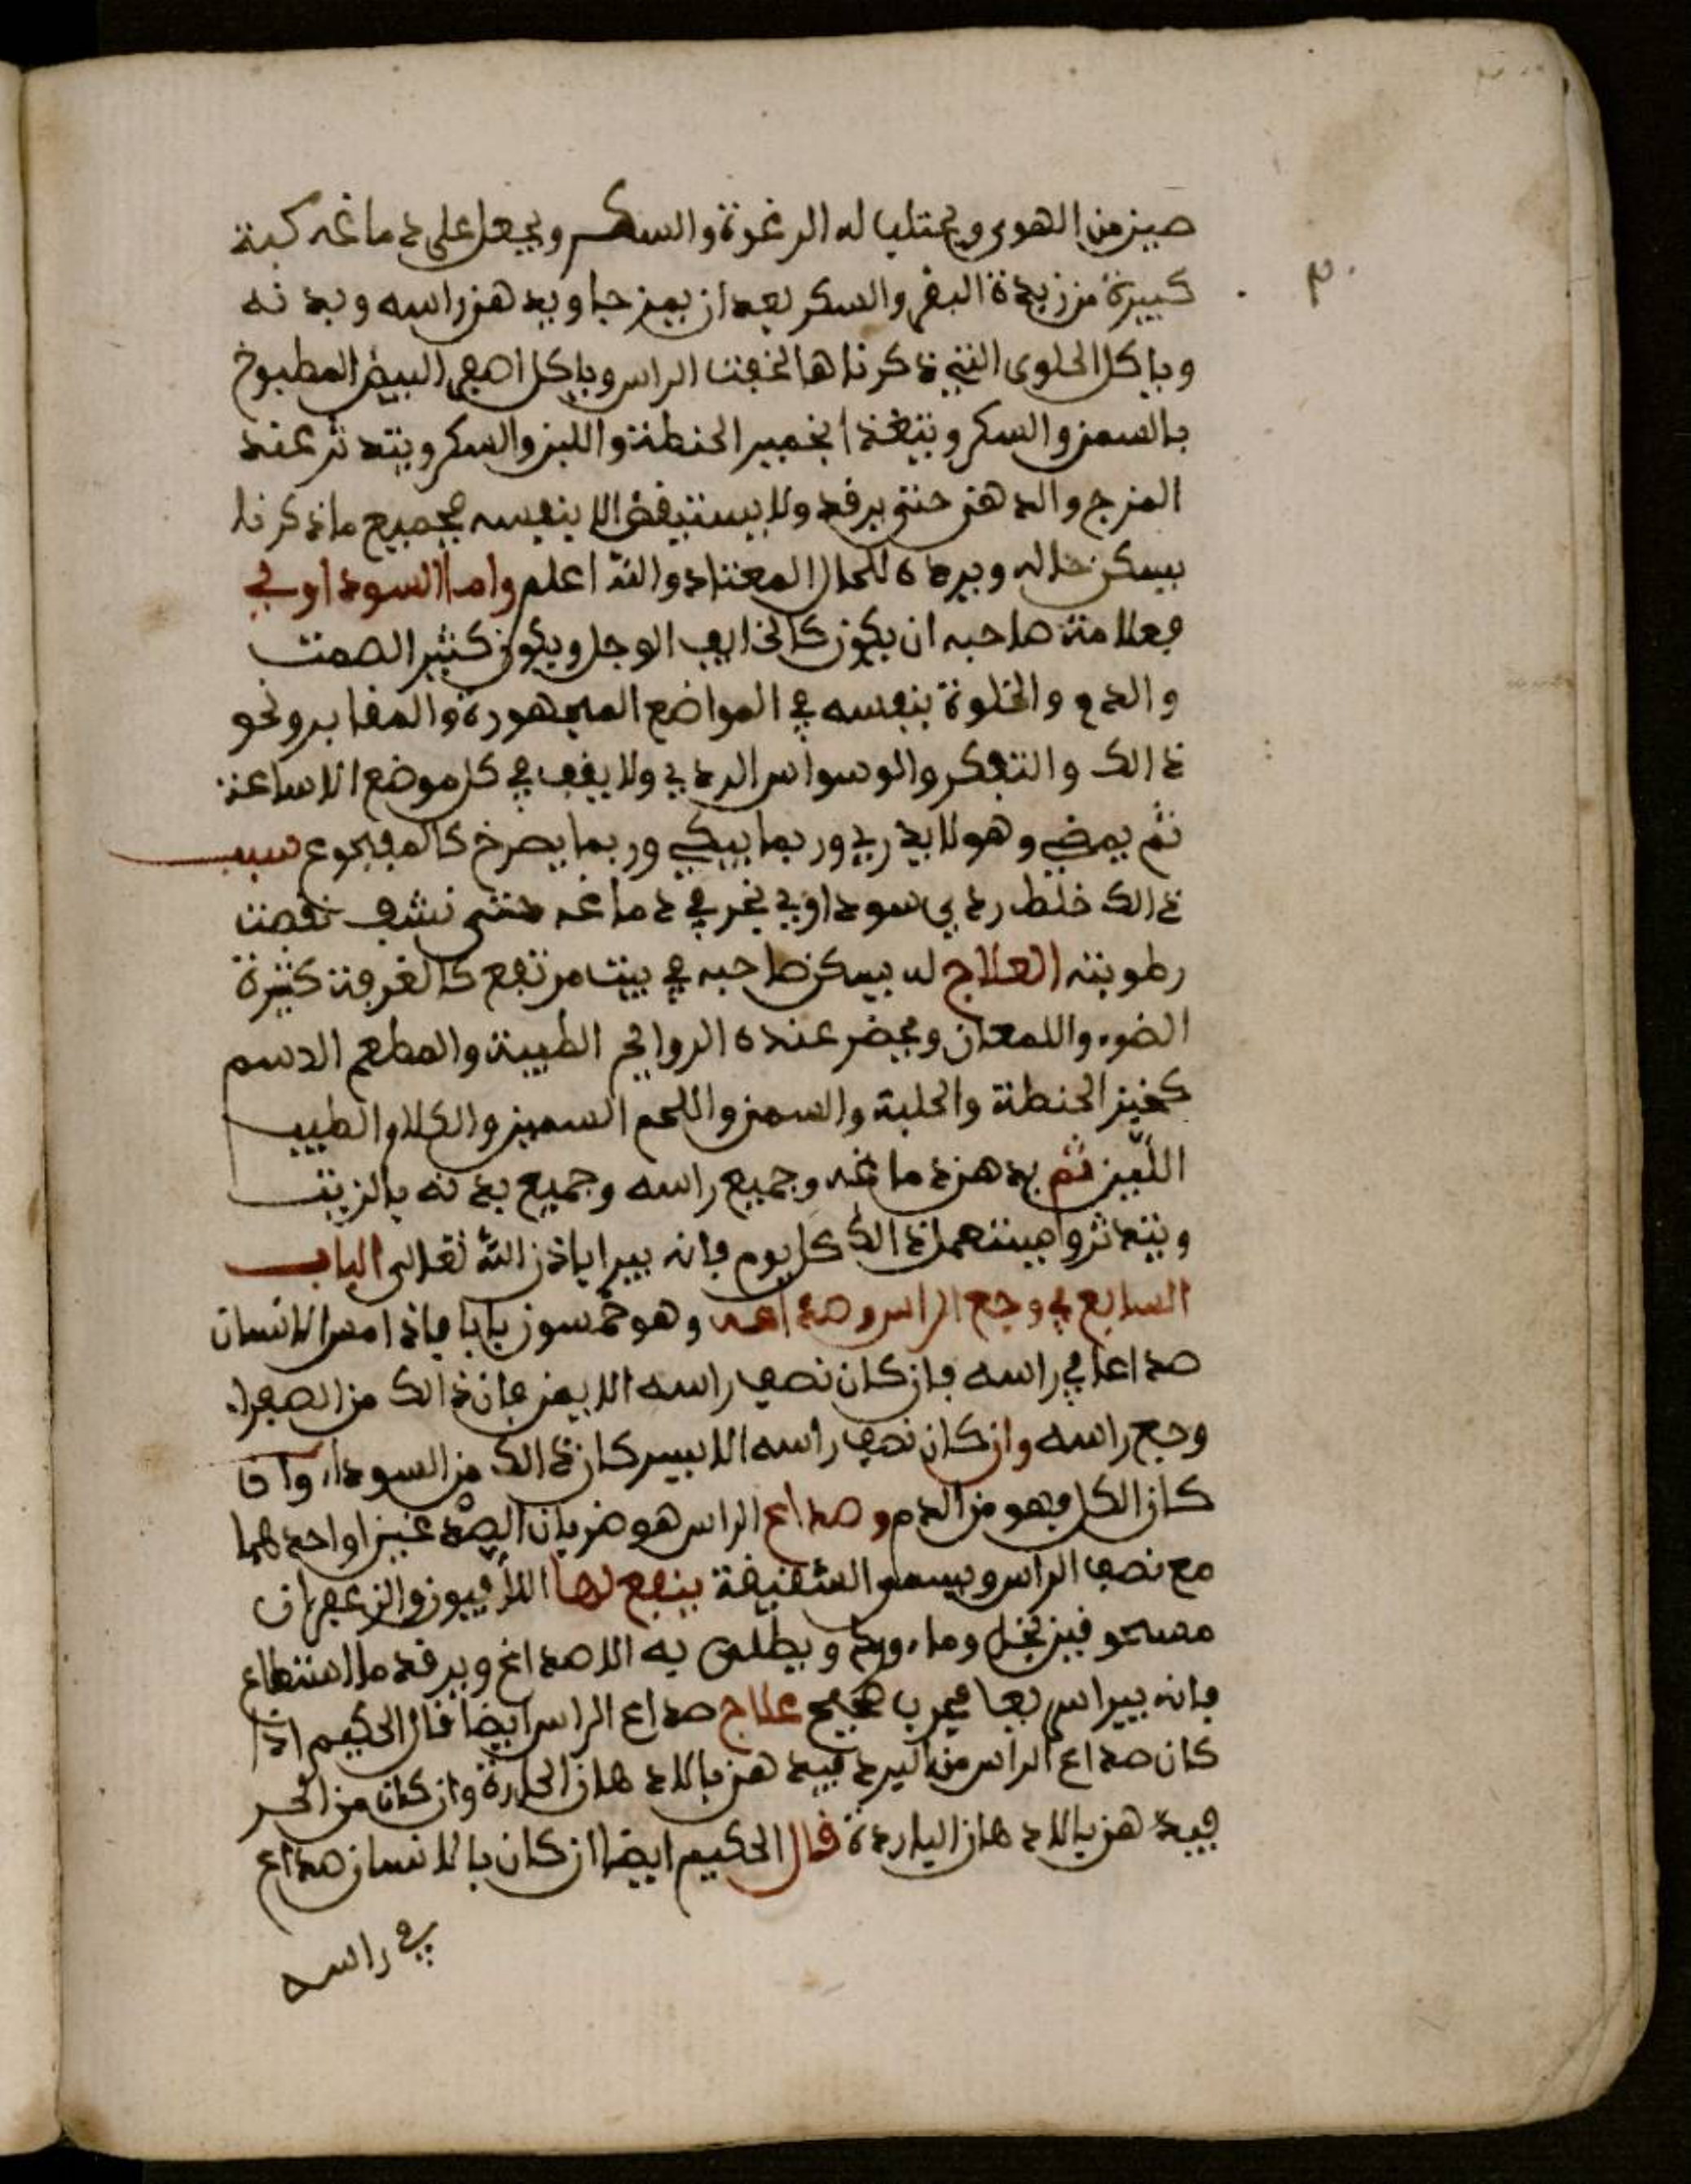 صين من الهوى ويحتلب له الرغوة والسكر ويجعل على دماغه كبة
كبيرة من زبدة البقر والسكر بعد ان يمزجا ويدهن راسه وبدنه
وياكل الحلوى التي ذكرناها لخفت الراس وياكل اصفر البيض المطبوخ
بالسمن والسكر ويتغذا بخمير الحنطة واللبن والسكر ويتدثر عند
المزج والدهن حتى يرقد ولا يستيقض الا بنفسه فجميع ما ذكرنا
يسكن خاله ويرده للحال المعتاد والله اعلم واما السوداوي
فعلامة صاحبه ان يكون كالخايف الوجل ويكون كثير الصمت
والدم والخلوة بنفسه في المواضع المهجورة والمقابر ونحو
ذالك والتفكر والوسواس الردي ولا يقف في كل موضع الا ساعة
ثم يمضي وهو لا يدري وربما يبكي وربما يصرخ كالمفجوع سبب
ذالك خلط ردي سوداوي نحر في دماغه حتى نشف نقصت
رطوبته العلاج له يسكن صاحبه في بيت مرتفع كالغرفة كثيرة
الضوء واللمعان ويحضر عنده الروايح الطيبة والمطعم الدسم
كخبز الحنطة والحلبة والسمن واللحم السمين والكلام الطيب
اللين ثم يدهن دماغه وجميع راسه وجميع بدنه بالزيت
ويتدثر ويستعمل ذالك كل يوم فانه يبرا باذن الله تعالى الباب
السابع في وجع الراس وصداعه وهو خمسون بابا فاذا امس الانسان
صداعا في راسه فان كان نصف راسه الايمن فان ذالك من الصفراء
وجع راسه وان كان نصف راسه الايسر كان ذالك من السوداء وان
كان الكل فهو من الدم وصداع الراس هو ضربان الصدغين او احدهما
مع نصف الراس ويسمى الشقيقة ينفع لها الافيون والزعفران
مسحوقين بخل وماء ورد ويطلى به الاصداغ ويرقد ما استطاع
فانه يبرا سريعا مجرب صحيح علاج صداع الراس ايضا قال الحكيم اذا
كان صداع الراس من البرد فيدهن بالادهان الحارة وان كان من الحر
فيدهن بالادهان الباردة قال الحكيم ايضا ان كان بالانسان صداع
في راسه